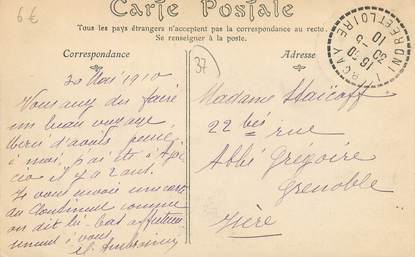 6 €
Carte Postale
Tous les pays étrangers n'acceptent pas la correspondance au recto.
Se renseigner à la poste.
Correspondance
Adresse
37
20 Mai 1910
Vous avez dû faire
un beau voyage
d'avoir pensé
à moi, j'ai été à
il y a 2 ans.
Je vous envoie une carte
du comme
on dit là-bas
à vous
Madame
22 bis rue
Abbé Grégoire
Grenoble
Isère
CIRCAY INDRE ET LOIRE
16 50
20 5
10